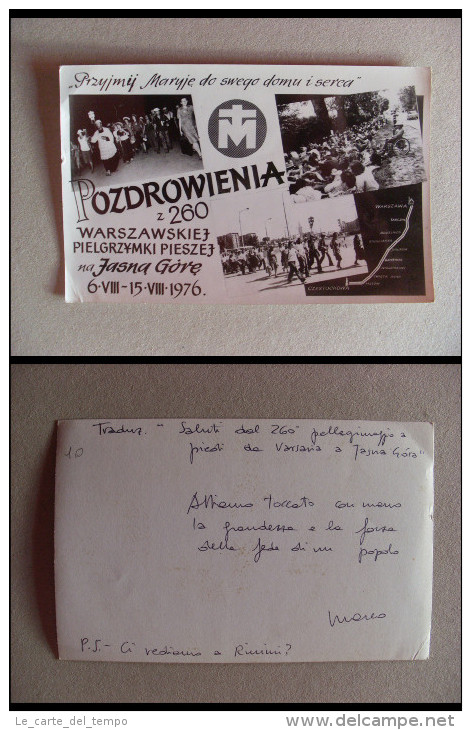 „Przyjmij Maryję do swego domu i serca"
M
POZDROWIENIA
z 260
WARSZAWSKIEJ
PIELGRZYMKI PIESZEJ
na Jasną Górę
6·VIII–15·VIII·1976.
WARSZAWA
CZĘSTOCHOWA
10
Traduz. " Saluti dal 260° pellegrinaggio a
piedi da Varsavia a Jasna Góra"
Abbiamo toccato con mano
la grandezza e la forza
della fede di un popolo
Marco
P.S.- Ci vediamo a Rimini?
Le_carte_del_tempo
delcampe.net